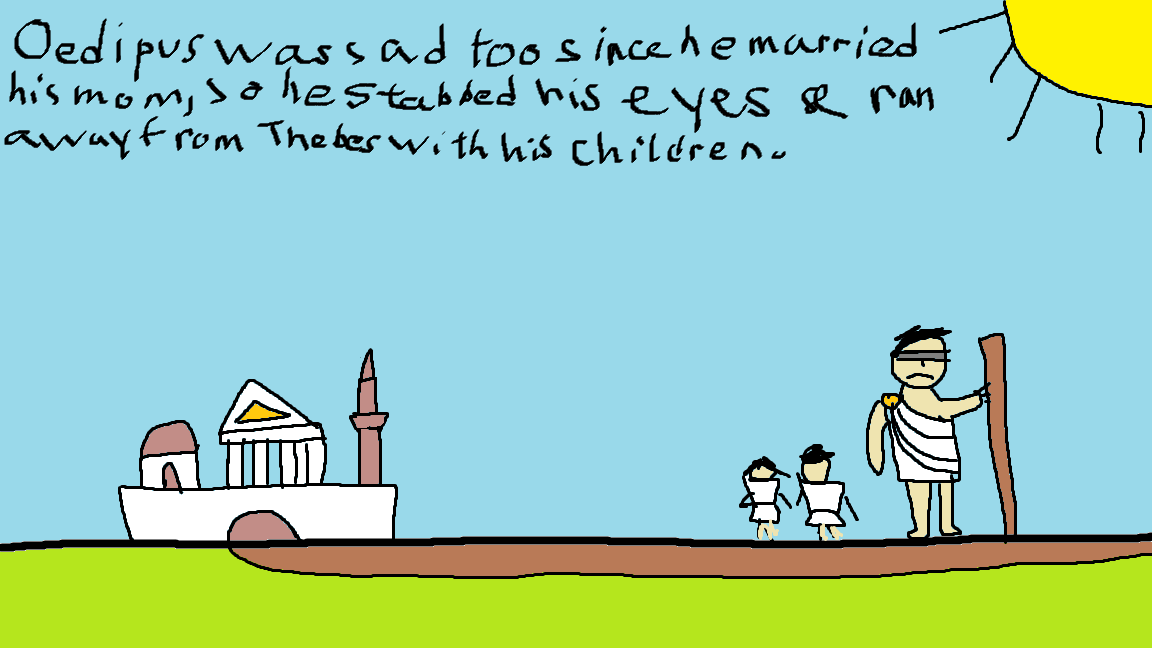 Oedipus was sad too since he married
his mom, so he stabbed his eyes & ran
away from Thebes with his children.